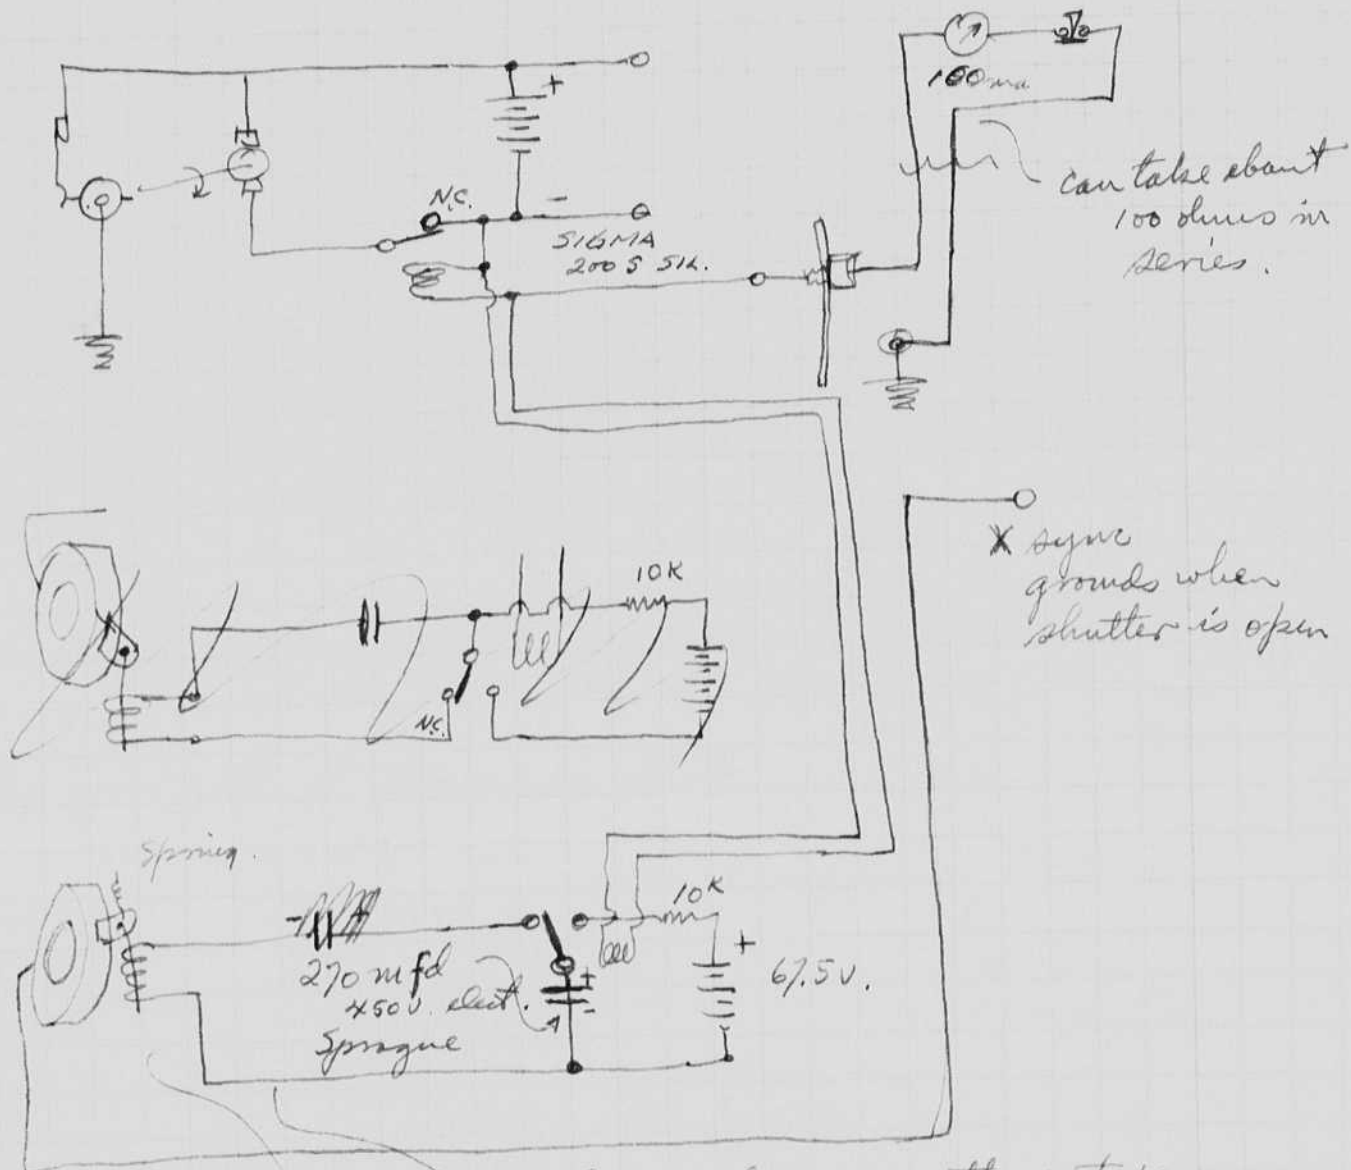 100 ma
+
N.C.
-
SIGMA
200 S SIL.
can take about
100 ohms in
series.
X sync
grounds when
shutter is open
10K
N.C.
Spring.
10K
-
+
270 mfd
450 V. elect.
Sprague
+
-
+
67.5 V.